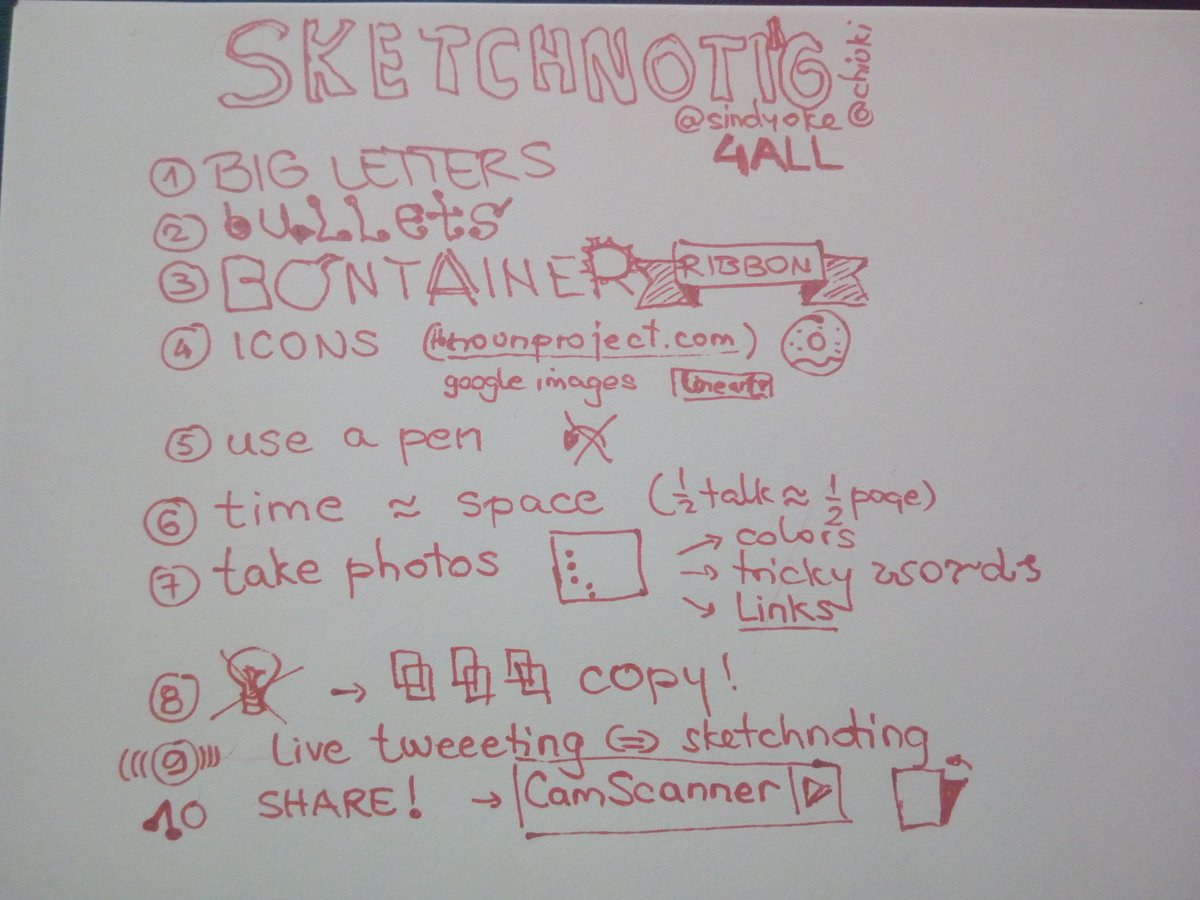 SKETCHNOTIG
@chiuki
@sindyoke
4ALL
1 BIG LETTERS
2 bullets
3 BONTAINER RIBBON
4 ICONS (thenounproject.com)
google images lineart
5 use a pen
6 time ≈ space (½ talk ≈ ½ page)
7 take photos → colors
→ tricky words
→ Links
8 → copy!
9 live tweeeting ⇔ sketchnoting
10 SHARE! → CamScanner